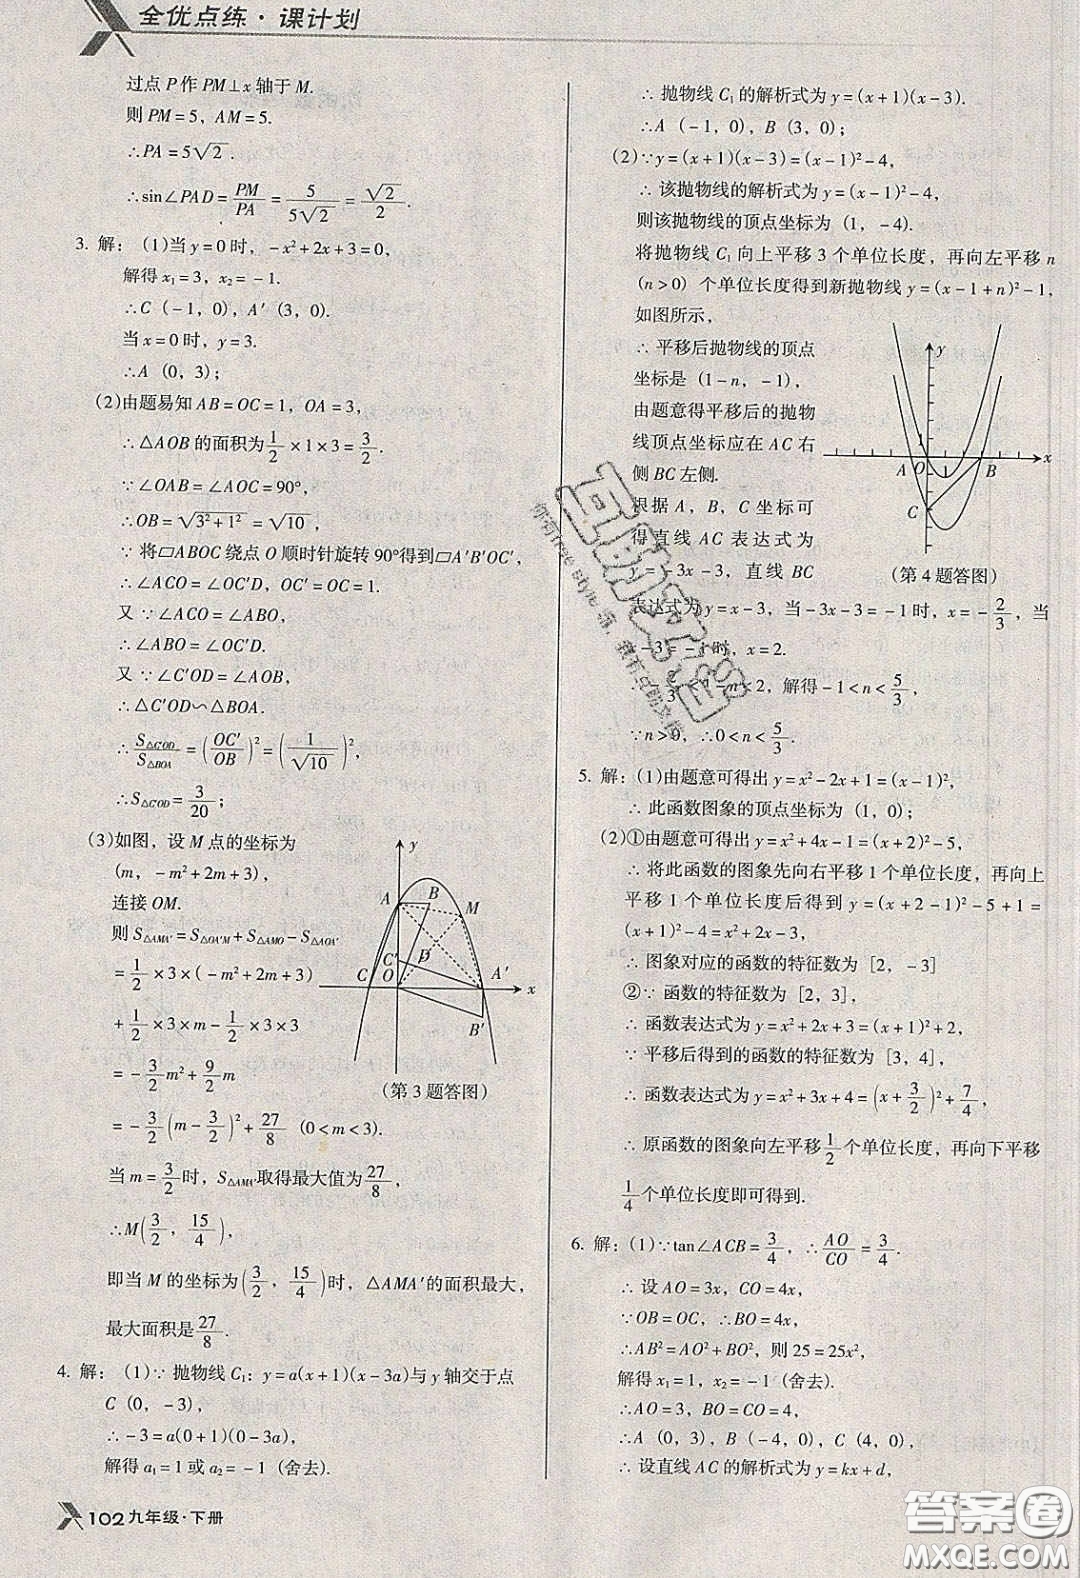 全优点练·课计划
过点P作PM⊥x轴于M.
则PM=5，AM=5.
∴PA=5√2.
∴sin∠PAD=PM/PA=5/(5√2)=√2/2.
3. 解：(1)当y=0时，-x²+2x+3=0，
解得x₁=3，x₂=-1.
∴C（-1，0），A′（3，0）.
当x=0时，y=3.
∴A（0，3）；
(2)由题易知AB=OC=1，OA=3，
∴△AOB的面积为1/2×1×3=3/2.
∵∠OAB=∠AOC=90°，
∴OB=√(3²+1²)=√10，
∵将▱ABOC绕点O顺时针旋转90°得到▱A′B′OC′，
∴∠ACO=∠OC′D，OC′=OC=1.
又∵∠ACO=∠ABO.
∴∠ABO=∠OC′D.
又∵∠C′OD=∠AOB，
∴△C′OD∽△BOA.
∴S△C′OD/S△BOA=(OC′/OB)²=(1/√10)²，
∴S△C′OD=3/20；
(3)如图，设M点的坐标为
(m，-m²+2m+3)，
连接OM.
则S△AMA′=S△OA′M+S△AMO-S△AOA′
=1/2×3×(-m²+2m+3)
+1/2×3×m-1/2×3×3
=-3/2m²+9/2m
=-3/2(m-3/2)²+27/8（0<m<3）.
y
A
B
M
C′
D
C
O
A′
x
B′
（第3题答图）
当m=3/2时，S△AMA′取得最大值为27/8，
∴M(3/2，15/4)，
即当M的坐标为(3/2，15/4)时，△AMA′的面积最大，
最大面积是27/8.
4. 解：（1）∵抛物线C₁：y=a(x+1)(x-3a)与y轴交于点
C（0，-3），
∴-3=a(0+1)(0-3a)，
解得a₁=1或a₂=-1（舍去）.
102九年级·下册
∴抛物线C₁的解析式为y=(x+1)(x-3).
∴A（-1，0），B（3，0）；
(2)∵y=(x+1)(x-3)=(x-1)²-4，
∴该抛物线的解析式为y=(x-1)²-4，
则该抛物线的顶点坐标为（1，-4）.
将抛物线C₁向上平移3个单位长度，再向左平移n
(n>0)个单位长度得到新抛物线y=(x-1+n)²-1，
如图所示，
∴平移后抛物线的顶点
坐标是（1-n，-1），
由题意得平移后的抛物
线顶点坐标应在AC右
侧BC左侧.
根据A，B，C坐标可
得直线AC表达式为
y=-3x-3，直线BC
y
1
A
O
B
x
C
（第4题答图）
表达式为y=x-3，当-3x-3=-1时，x=-2/3，当
x-3=-1时，x=2.
∴-2/3<1-n<2，解得-1<n<5/3，
∵n>0，∴0<n<5/3.
5. 解：(1)由题意可得出y=x²-2x+1=(x-1)²，
∴此函数图象的顶点坐标为（1，0）；
(2)①由题意可得出y=x²+4x-1=(x+2)²-5，
∴将此函数的图象先向右平移1个单位长度，再向上
平移1个单位长度后得到y=(x+2-1)²-5+1=
(x+1)²-4=x²+2x-3，
∴图象对应的函数的特征数为［2，-3］
②∵函数的特征数为［2，3］，
∴函数表达式为y=x²+2x+3=(x+1)²+2，
∵平移后得到的函数的特征数为［3，4］，
∴函数表达式为y=x²+3x+4=(x+3/2)²+7/4，
∴原函数的图象向左平移1/2个单位长度，再向下平移
1/4个单位长度即可得到.
6. 解：(1)∵tan∠ACB=3/4，∴AO/CO=3/4.
∴设AO=3x，CO=4x，
∵OB=OC，∴BO=4x.
∴AB²=AO²+BO²，则25=25x²，
解得x₁=1，x₂=-1（舍去）.
∴AO=3，BO=CO=4，
∴A（0，3），B（-4，0），C（4，0），
∴设直线AC的解析式为y=kx+d，
答案圈
MXQE.COM